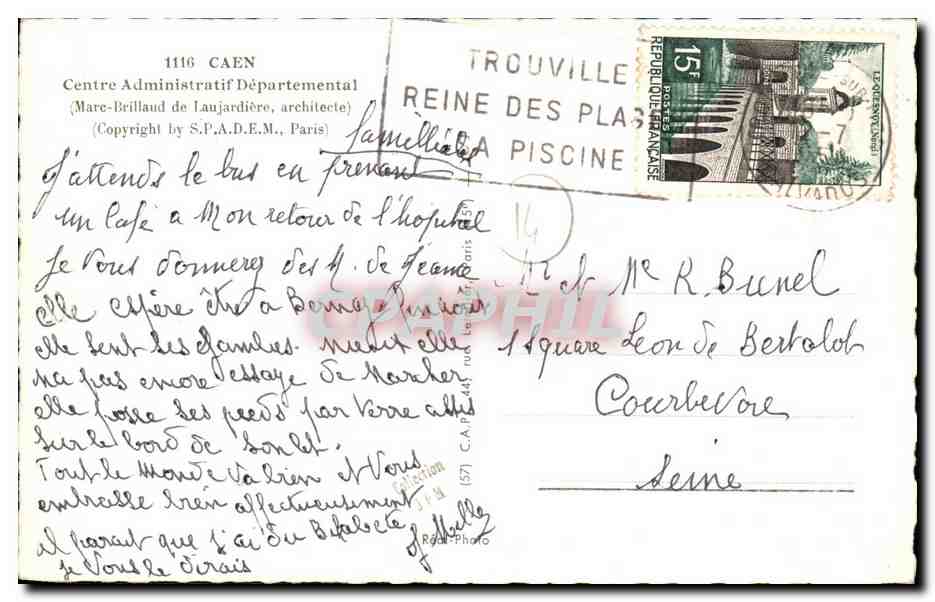 1116 CAEN
Centre Administratif Départemental
(Marc-Brillaud de Laujardière, architecte)
(Copyright by S.P.A.D.E.M., Paris)
TROUVILLE
REINE DES PLA
LA PISCINE
15F
POSTES
REPUBLIQUE FRANÇAISE
LE QUESNOY (Nord)
14
J'attends le bus en prenant
un Café a Mon retour de l'hopital
Je vous donnerez des N. de Jeanne
elle espère être a Bernay
elle sent ses Jambes. mieux elle
na pas encore essaye de Marcher
elle pose ses pieds par terre assis
sur le bord de son let.
Tout le Monde va bien et Vous
embrasse bien affectueusement
il parait que j'ai du
Je vous le dirais
Mr et Me R. Bunel
1 Square Leon de Bertalot
Courbevoie
Seine
CPAPHIL
Collection
(57) C.A.P. 44, rue Letellier, Paris (15e)
Réel-Photo